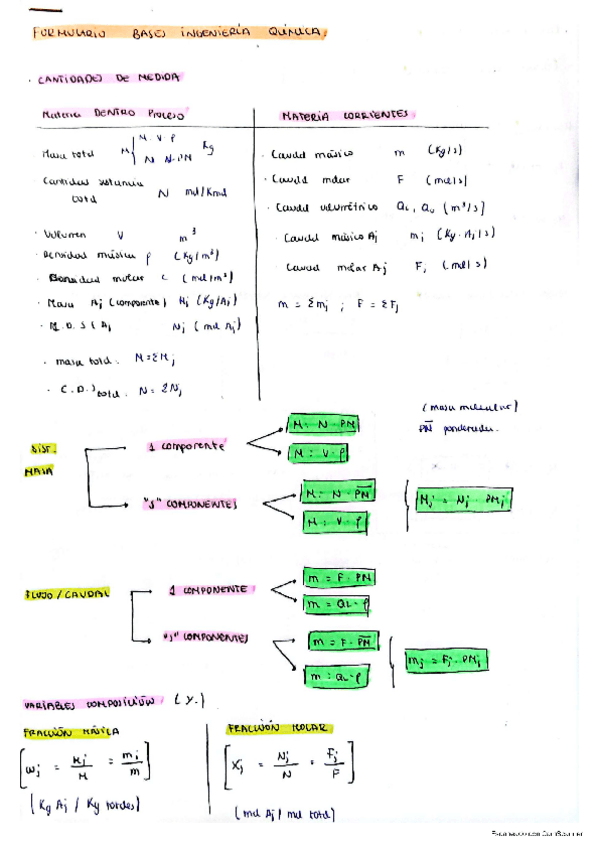 FORMULARIO BASES INGENIERÍA QUÍMICA.
· CANTIDADES DE MEDIDA
Materia DENTRO Proceso
Masa total M { M = V · ρ
N · PM Kg
Cantidad sustancia total N mol/Kmol
· Volumen V m³
· Densidad másica ρ (Kg/m³)
· Densidad molar c (mol/m³)
· Masa Aj (componente) Mj (Kg/Aj)
Nj (mol Aj)
· masa total: M = ΣMj
total: N = ΣNj
MATERIA CORRIENTES
· Caudal másico m (Kg/s)
· Caudal molar F (mol/s)
· Caudal volumétrico QL, Qv (m³/s)
· Caudal másico Aj mj (Kg · Aj/s)
· Caudal molar Aj Fj (mol/s)
m = Σmj ; F = ΣFj
(masa molecular)
PM ponderada.
DIST.
MASA
1 componente
M = N · PM
M = V · ρ
"J" COMPONENTES
M = N · PM
M = V · ρ
Mj = Nj · PMj
FLUJO / CAUDAL
1 COMPONENTE
m = F · PM
m = QL · ρ
"J" COMPONENTES
m = F · PM
m = QL · ρ
mj = Fj · PMj
VARIABLES COMPOSICIÓN
FRACCIÓN MÁSICA
[wj = Mj/M = mj/m]
(Kg Aj / Kg totales)
FRACCIÓN MOLAR
[Xj = Nj/N = Fj/F]
(mol Aj / mol total)
Escaneado con CamScanner